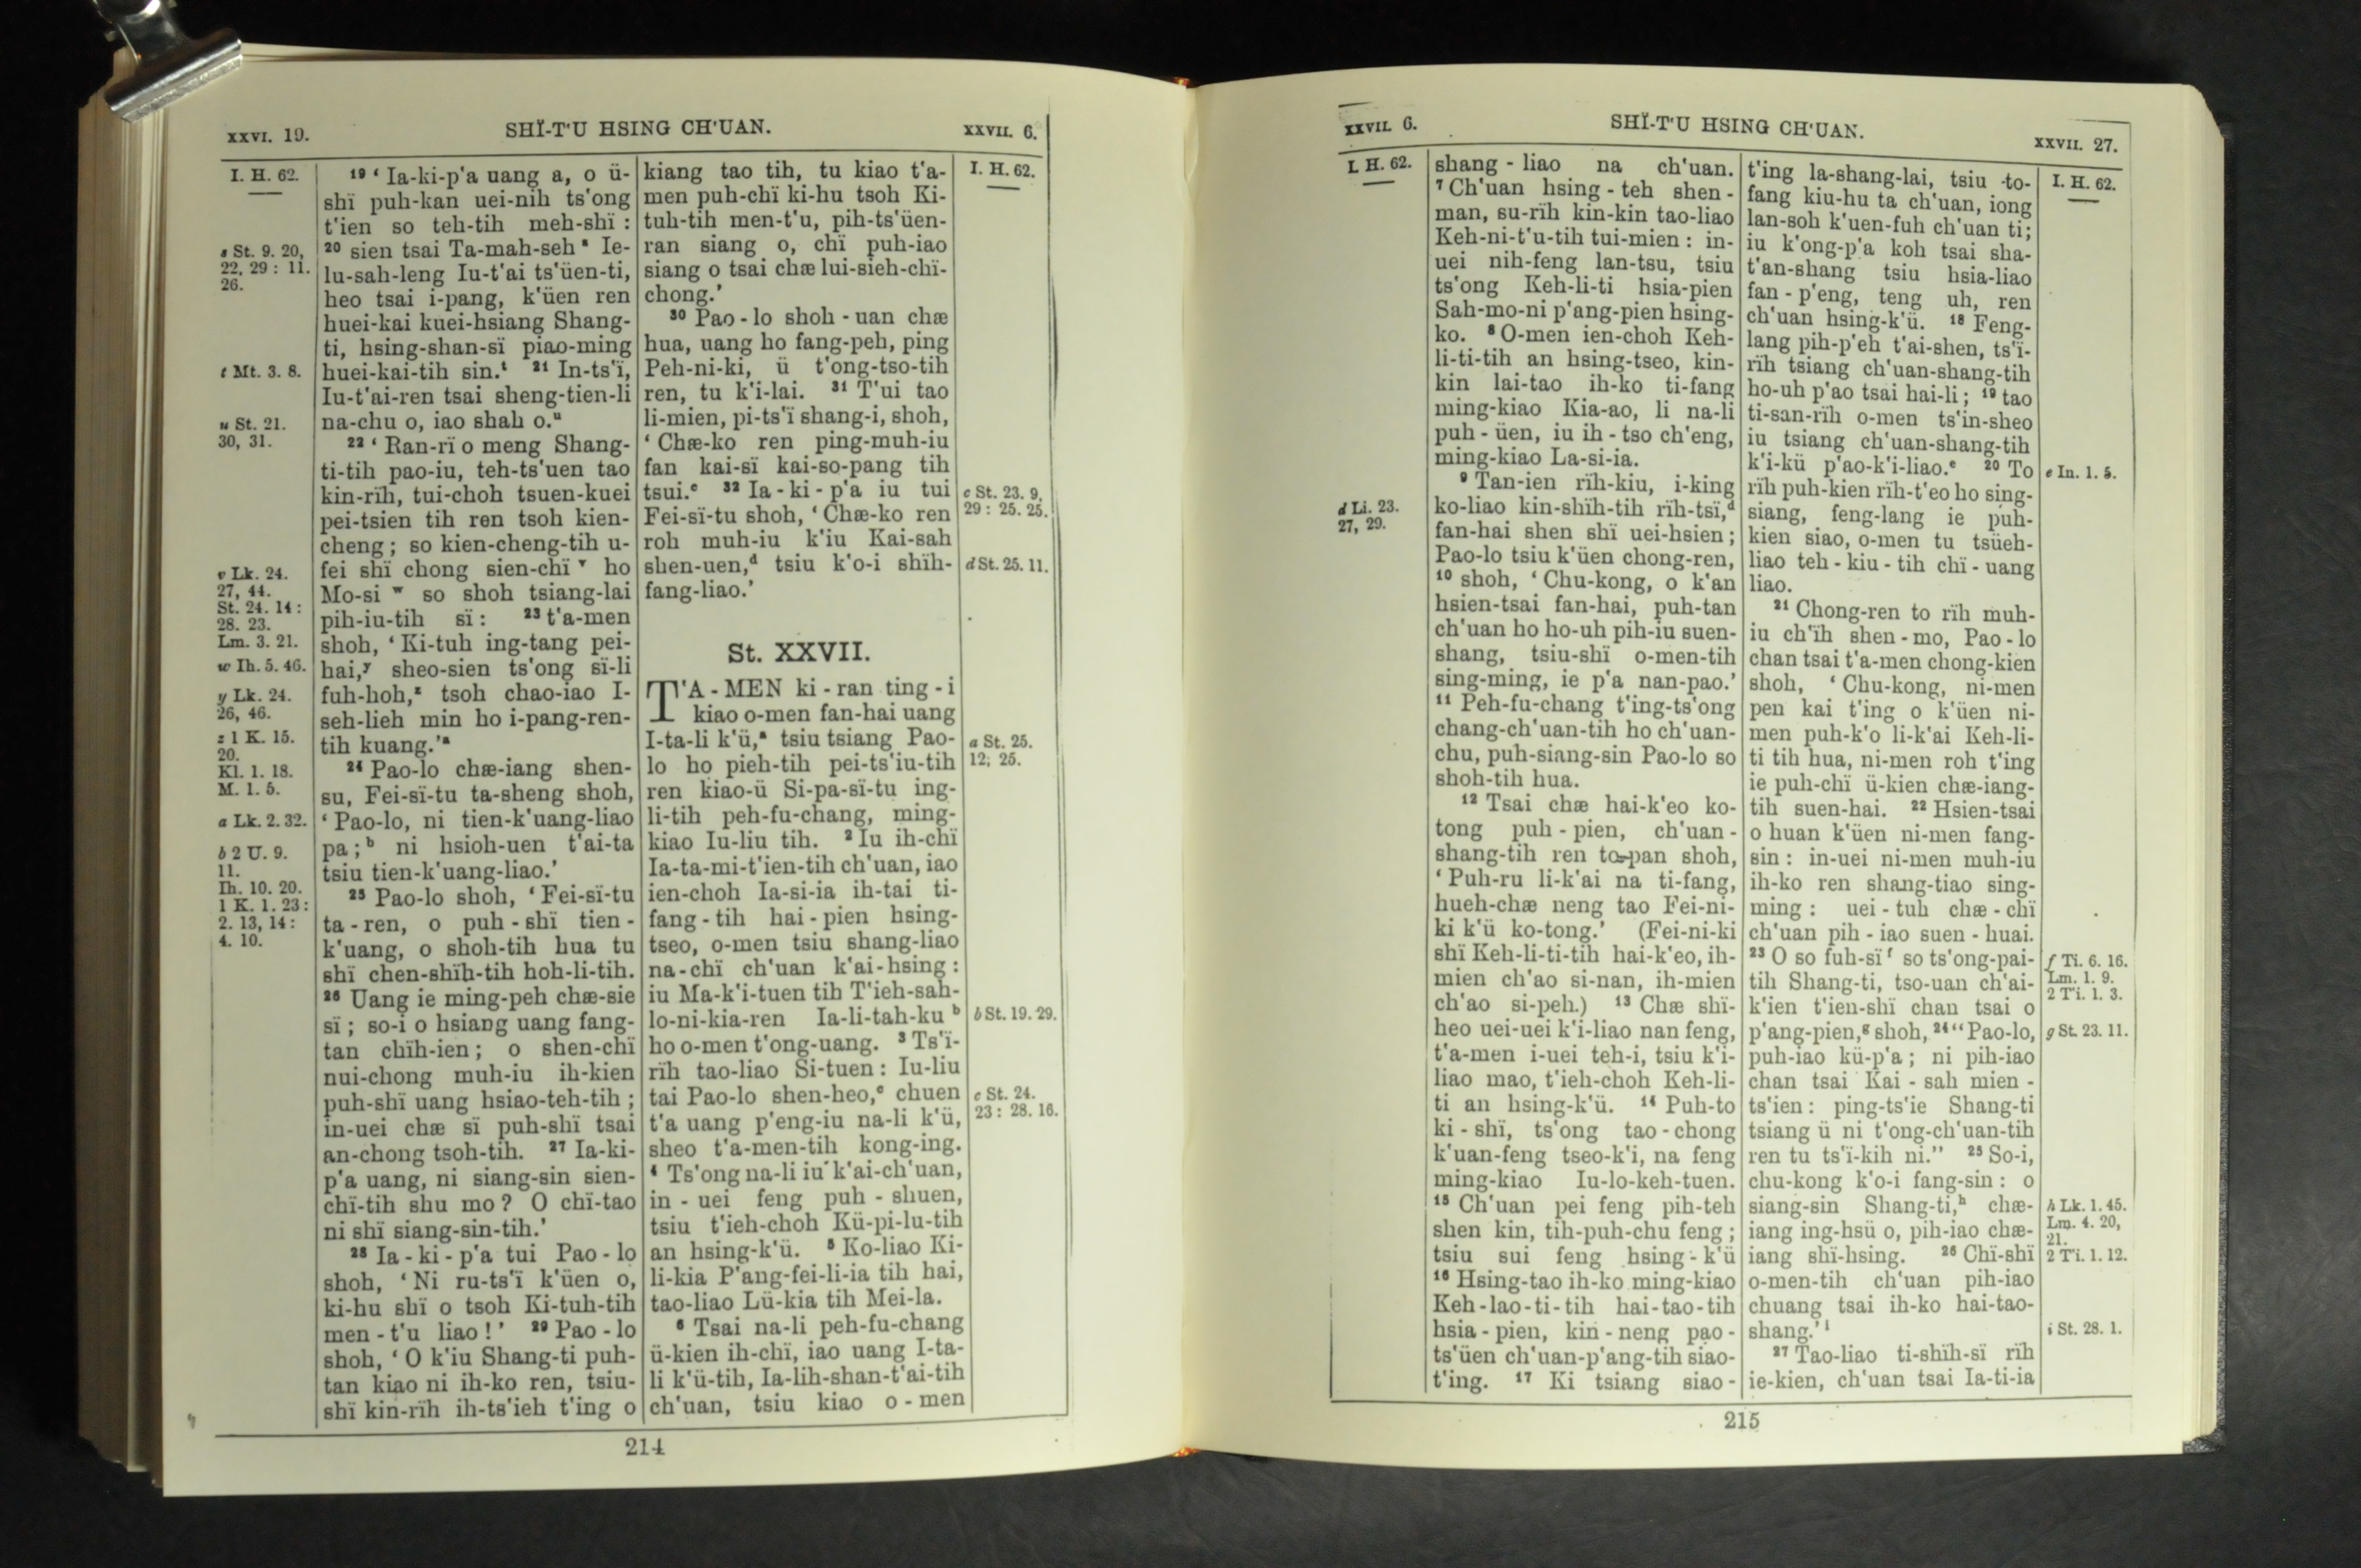 XXVI. 19.
SHÏ-T'U HSING CH'UAN.
XXVII. 6.
I. H. 62.
s St. 9. 20,
22, 29 : 11.
26.
t Mt. 3. 8.
u St. 21.
30, 31.
v Lk. 24.
27, 44.
St. 24. 14 :
28. 23.
Lm. 3. 21.
w Ih. 5. 46.
y Lk. 24.
26, 46.
z 1 K. 15.
20.
Kl. 1. 18.
M. 1. 5.
a Lk. 2. 32.
b 2 U. 9.
11.
Ih. 10. 20.
1 K. 1. 23 :
2. 13, 14 :
4. 10.
19 ‘ Ia-ki-p'a uang a, o ü-
shï puh-kan uei-nih ts'ong
t'ien so teh-tih meh-shï :
20 sien tsai Ta-mah-seh s Ie-
lu-sah-leng Iu-t'ai ts'üen-ti,
heo tsai i-pang, k'üen ren
huei-kai kuei-hsiang Shang-
ti, hsing-shan-sï piao-ming
huei-kai-tih sin.t 21 In-ts'ï,
Iu-t'ai-ren tsai sheng-tien-li
na-chu o, iao shah o.u
22 ‘ Ran-rï o meng Shang-
ti-tih pao-iu, teh-ts'uen tao
kin-rïh, tui-choh tsuen-kuei
pei-tsien tih ren tsoh kien-
cheng ; so kien-cheng-tih u-
fei shï chong sien-chï v ho
Mo-si w so shoh tsiang-lai
pih-iu-tih sï : 23 t'a-men
shoh, ‘ Ki-tuh ing-tang pei-
hai,y sheo-sien ts'ong sï-li
fuh-hoh,z tsoh chao-iao I-
seh-lieh min ho i-pang-ren-
tih kuang.’a
24 Pao-lo chæ-iang shen-
su, Fei-sï-tu ta-sheng shoh,
‘ Pao-lo, ni tien-k'uang-liao
pa ;b ni hsioh-uen t'ai-ta
tsiu tien-k'uang-liao.’
25 Pao-lo shoh, ‘ Fei-sï-tu
ta - ren, o puh - shï tien -
k'uang, o shoh-tih hua tu
shï chen-shïh-tih hoh-li-tih.
26 Uang ie ming-peh chæ-sie
sï ; so-i o hsiang uang fang-
tan chïh-ien ; o shen-chï
nui-chong muh-iu ih-kien
puh-shï uang hsiao-teh-tih ;
in-uei chæ sï puh-shï tsai
an-chong tsoh-tih. 27 Ia-ki-
p'a uang, ni siang-sin sien-
chï-tih shu mo ? O chï-tao
ni shï siang-sin-tih.’
28 Ia - ki - p'a tui Pao - lo
shoh, ‘ Ni ru-ts'ï k'üen o,
ki-hu shï o tsoh Ki-tuh-tih
men - t'u liao ! ’ 29 Pao - lo
shoh, ‘ O k'iu Shang-ti puh-
tan kiao ni ih-ko ren, tsiu-
shï kin-rïh ih-ts'ieh t'ing o
kiang tao tih, tu kiao t'a-
men puh-chï ki-hu tsoh Ki-
tuh-tih men-t'u, pih-ts'üen-
ran siang o, chï puh-iao
siang o tsai chæ lui-sieh-chï-
chong.’
30 Pao - lo shoh - uan chæ
hua, uang ho fang-peh, ping
Peh-ni-ki, ü t'ong-tso-tih
ren, tu k'i-lai. 31 T'ui tao
li-mien, pi-ts'ï shang-i, shoh,
‘ Chæ-ko ren ping-muh-iu
fan kai-sï kai-so-pang tih
tsui.c 32 Ia - ki - p'a iu tui
Fei-sï-tu shoh, ‘ Chæ-ko ren
roh muh-iu k'iu Kai-sah
shen-uen,d tsiu k'o-i shïh-
fang-liao.’
St. XXVII.
T'A - MEN ki - ran ting - i
kiao o-men fan-hai uang
I-ta-li k'ü,a tsiu tsiang Pao-
lo ho pieh-tih pei-ts'iu-tih
ren kiao-ü Si-pa-sï-tu ing-
li-tih peh-fu-chang, ming-
kiao Iu-liu tih. 2 Iu ih-chï
Ia-ta-mi-t'ien-tih ch'uan, iao
ien-choh Ia-si-ia ih-tai ti-
fang - tih hai - pien hsing-
tseo, o-men tsiu shang-liao
na - chï ch'uan k'ai-hsing :
iu Ma-k'i-tuen tih T'ieh-sah-
lo-ni-kia-ren Ia-li-tah-ku b
ho o-men t'ong-uang. 3 Ts'ï-
rïh tao-liao Si-tuen : Iu-liu
tai Pao-lo shen-heo,c chuen
t'a uang p'eng-iu na-li k'ü,
sheo t'a-men-tih kong-ing.
4 Ts'ong na-li iu k'ai-ch'uan,
in - uei feng puh - shuen,
tsiu t'ieh-choh Kü-pi-lu-tih
an hsing-k'ü. 5 Ko-liao Ki-
li-kia P'ang-fei-li-ia tih hai,
tao-liao Lü-kia tih Mei-la.
6 Tsai na-li peh-fu-chang
ü-kien ih-chï, iao uang I-ta-
li k'ü-tih, Ia-lih-shan-t'ai-tih
ch'uan, tsiu kiao o - men
I. H. 62.
c St. 23. 9,
29 : 25. 25.
d St. 25. 11.
a St. 25.
12, 25.
b St. 19. 29.
c St. 24.
23 : 28. 16.
214
XXVII. 6.
SHÏ-T'U HSING CH'UAN.
XXVII. 27.
I. H. 62.
d Li. 23.
27, 29.
shang - liao na ch'uan.
7 Ch'uan hsing - teh shen -
man, su-rïh kin-kin tao-liao
Keh-ni-t'u-tih tui-mien : in-
uei nih-feng lan-tsu, tsiu
ts'ong Keh-li-ti hsia-pien
Sah-mo-ni p'ang-pien hsing-
ko. 8 O-men ien-choh Keh-
li-ti-tih an hsing-tseo, kin-
kin lai-tao ih-ko ti-fang
ming-kiao Kia-ao, li na-li
puh - üen, iu ih - tso ch'eng,
ming-kiao La-si-ia.
9 Tan-ien rïh-kiu, i-king
ko-liao kin-shïh-tih rïh-tsï,d
fan-hai shen shï uei-hsien ;
Pao-lo tsiu k'üen chong-ren,
10 shoh, ‘ Chu-kong, o k'an
hsien-tsai fan-hai, puh-tan
ch'uan ho ho-uh pih-iu suen-
shang, tsiu-shï o-men-tih
sing-ming, ie p'a nan-pao.’
11 Peh-fu-chang t'ing-ts'ong
chang-ch'uan-tih ho ch'uan-
chu, puh-siang-sin Pao-lo so
shoh-tih hua.
12 Tsai chæ hai-k'eo ko-
tong puh - pien, ch'uan -
shang-tih ren to-pan shoh,
‘ Puh-ru li-k'ai na ti-fang,
hueh-chæ neng tao Fei-ni-
ki k'ü ko-tong.’ (Fei-ni-ki
shï Keh-li-ti-tih hai-k'eo, ih-
mien ch'ao si-nan, ih-mien
ch'ao si-peh.) 13 Chæ shï-
heo uei-uei k'i-liao nan feng,
t'a-men i-uei teh-i, tsiu k'i-
liao mao, t'ieh-choh Keh-li-
ti an hsing-k'ü. 14 Puh-to
ki - shï, ts'ong tao - chong
k'uan-feng tseo-k'i, na feng
ming-kiao Iu-lo-keh-tuen.
15 Ch'uan pei feng pih-teh
shen kin, tih-puh-chu feng ;
tsiu sui feng hsing - k'ü
16 Hsing-tao ih-ko ming-kiao
Keh-lao-ti-tih hai-tao-tih
hsia - pien, kin - neng pao -
ts'üen ch'uan-p'ang-tih siao-
t'ing. 17 Ki tsiang siao -
t'ing la-shang-lai, tsiu to-
fang kiu-hu ta ch'uan, iong
lan-soh k'uen-fuh ch'uan ti ;
iu k'ong-p'a koh tsai sha-
t'an-shang tsiu hsia-liao
fan - p'eng, teng uh, ren
ch'uan hsing-k'ü. 18 Feng-
lang pih-p'eh t'ai-shen, ts'ï-
rïh tsiang ch'uan-shang-tih
ho-uh p'ao tsai hai-li ; 19 tao
ti-san-rïh o-men ts'in-sheo
iu tsiang ch'uan-shang-tih
k'i-kü p'ao-k'i-liao.e 20 To
rïh puh-kien rïh-t'eo ho sing-
siang, feng-lang ie puh-
kien siao, o-men tu tsüeh-
liao teh - kiu - tih chï - uang
liao.
21 Chong-ren to rïh muh-
iu ch'ïh shen - mo, Pao - lo
chan tsai t'a-men chong-kien
shoh, ‘ Chu-kong, ni-men
pen kai t'ing o k'üen ni-
men puh-k'o li-k'ai Keh-li-
ti tih hua, ni-men roh t'ing
ie puh-chï ü-kien chæ-iang-
tih suen-hai. 22 Hsien-tsai
o huan k'üen ni-men fang-
sin : in-uei ni-men muh-iu
ih-ko ren shang-tiao sing-
ming : uei - tuh chæ - chï
ch'uan pih - iao suen - huai.
23 O so fuh-sï f so ts'ong-pai-
tih Shang-ti, tso-uan ch'ai-
k'ien t'ien-shï chan tsai o
p'ang-pien,g shoh, 24 “ Pao-lo,
puh-iao kü-p'a ; ni pih-iao
chan tsai Kai - sah mien -
ts'ien : ping-ts'ie Shang-ti
tsiang ü ni t'ong-ch'uan-tih
ren tu ts'ï-kih ni.” 25 So-i,
chu-kong k'o-i fang-sin : o
siang-sin Shang-ti,h chæ-
iang ing-hsü o, pih-iao chæ-
iang shï-hsing. 26 Chï-shï
o-men-tih ch'uan pih-iao
chuang tsai ih-ko hai-tao-
shang.’i
27 Tao-liao ti-shïh-sï rïh
ie-kien, ch'uan tsai Ia-ti-ia
I. H. 62.
e In. 1. 5.
f Ti. 6. 16.
Lm. 1. 9.
2 Ti. 1. 3.
g St. 23. 11.
h Lk. 1. 45.
Lm. 4. 20,
21.
2 Ti. 1. 12.
i St. 28. 1.
215